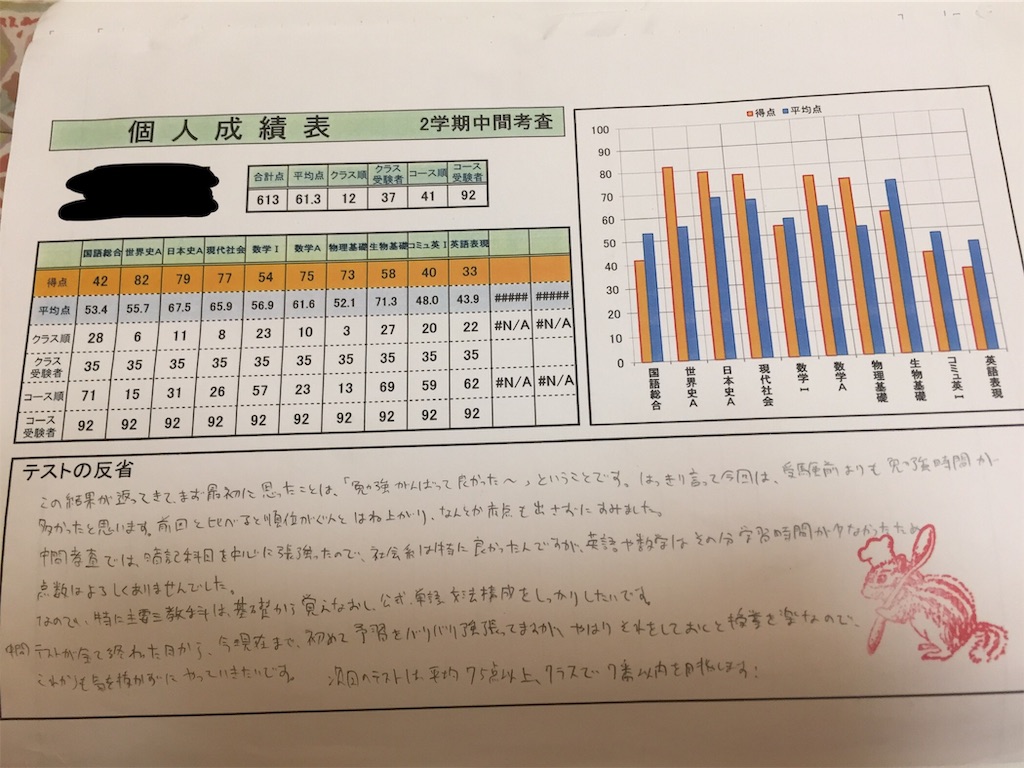 個人成績表 2学期中間考査
合計点 平均点 クラス順 クラス受験者 コース順 コース受験者
613 61.3 12 37 41 92
国語総合 世界史A 日本史A 現代社会 数学Ⅰ 数学A 物理基礎 生物基礎 コミュ英Ⅰ 英語表現
得点 42 82 79 77 54 75 73 58 40 33
平均点 53.4 55.7 67.5 65.9 56.9 61.6 52.1 71.3 48.0 43.9 ##### #####
クラス順 28 6 11 8 23 10 3 27 20 22 #N/A #N/A
クラス受験者 35 35 35 35 35 35 35 35 35 35
コース順 71 15 31 26 57 23 13 69 59 62 #N/A #N/A
コース受験者 92 92 92 92 92 92 92 92 92 92
得点 平均点
100
90
80
70
60
50
40
30
20
10
0
国語総合 世界史A 日本史A 現代社会 数学Ⅰ 数学A 物理基礎 生物基礎 コミュ英Ⅰ 英語表現
テストの反省
この結果が返ってきて、まず最初に思ったことは、「勉強がんばって良かた〜」ということです。はっきり言って今回は、受験前よりも勉強時間が
多かったと思います。前回と比べると順位がぐんとはね上がり、なんとか赤点も出さずにすみました。
中間考査では、暗記科目を中心に頑張ったので、社会系は特に良かったんですが、英語や数学はその分学習時間が少なかったため
点数はよろしくありませんでした。
なので、特に主要三教科は、基礎から覚えなおし、公式、単語、文法構成をしっかりしたいです。
中間テストが全て終わった日から、今現在まで、初めて予習をバリバリ頑張ってますが、やはりそれをしておくと授業も楽なので、
これからも気を抜かずにやっていきたいです。 次回のテストは、平均75点以上、クラスで7番以内を目指します!